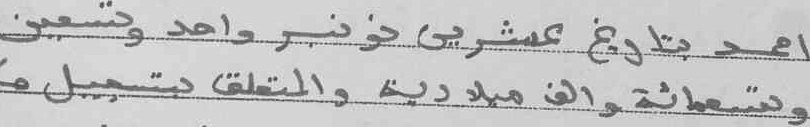 احمد بتاريخ عشرين نوفمبر واحد وتسعين
وتسعمائة والف ميلادية والمتعلق بتسجيل